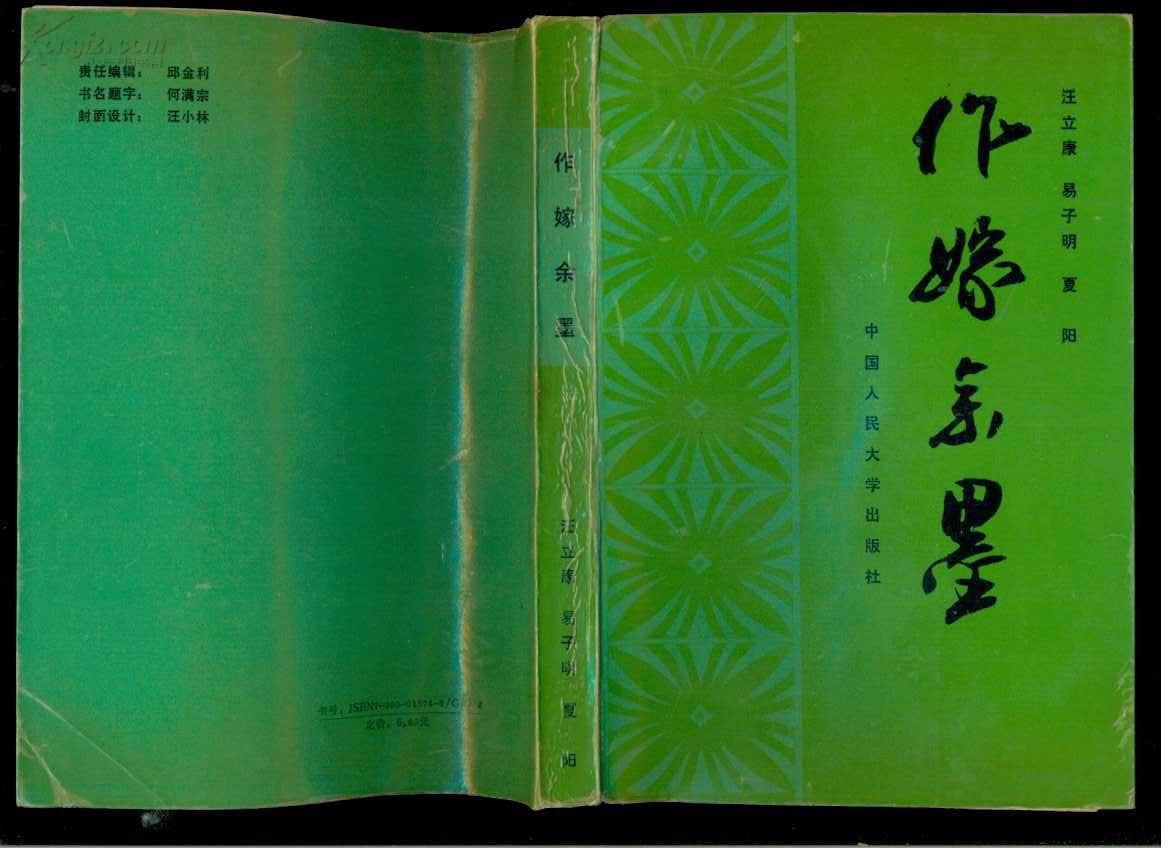 Kongfz.com
责任编辑： 邱金利
书名题字： 何满宗
封面设计： 汪小林
书号：
定价：6.80元
作嫁余墨
汪立康 易子明 夏阳
汪立康 易子明 夏阳
作嫁余墨
中国人民大学出版社